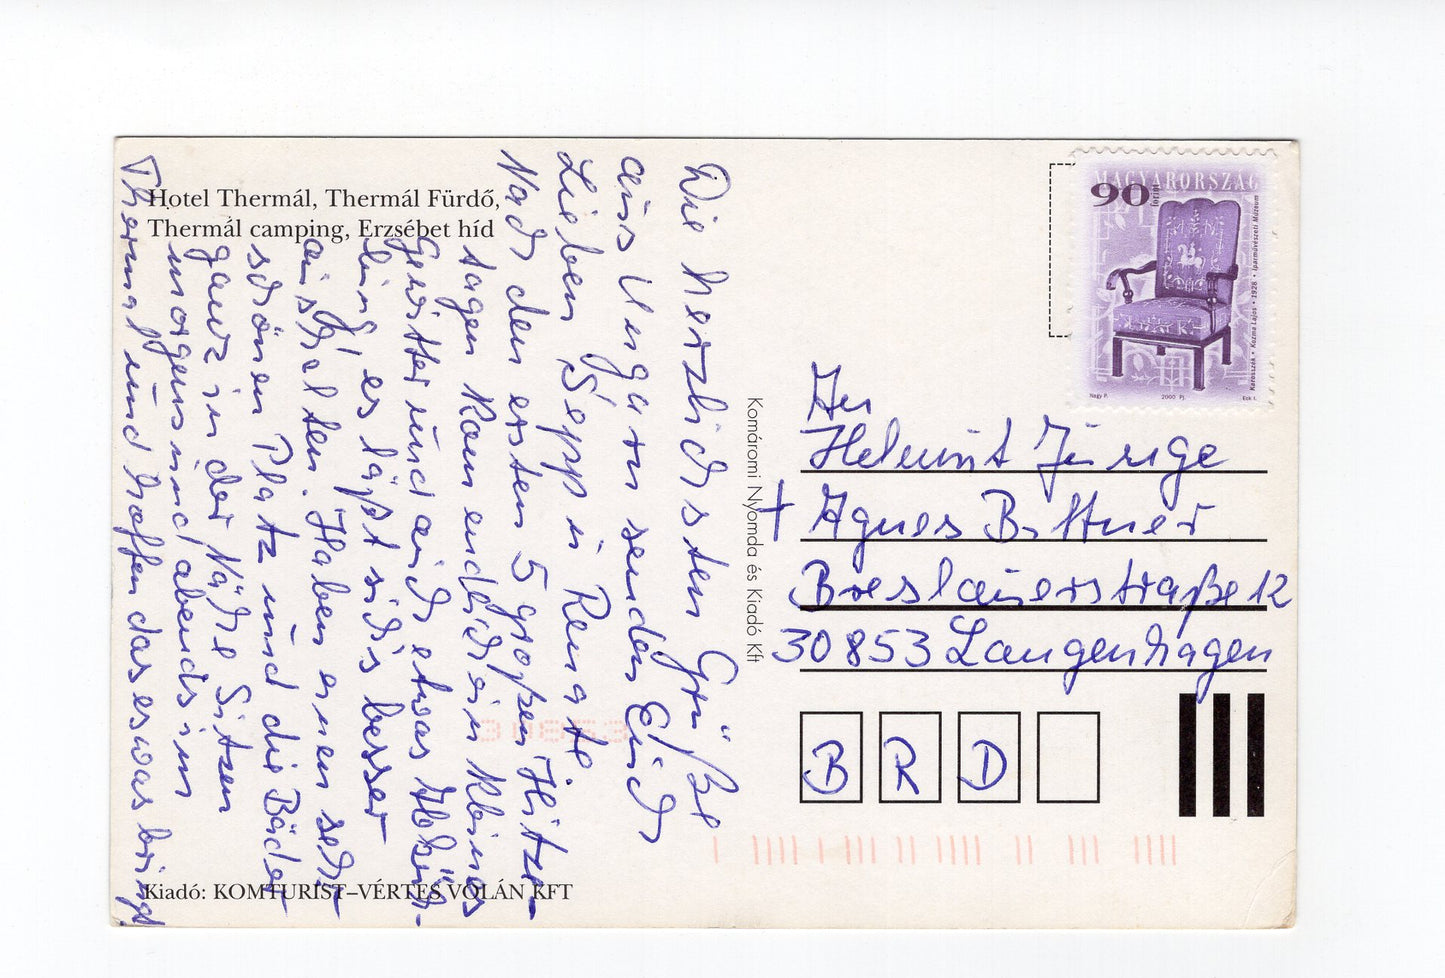 Hotel Thermál, Thermál Fürdő,
Thermál camping, Erzsébet híd
Die herzlichsten Grüße
aus Ungarn senden Euch
Lieben Sepp u Renate
Nach den ersten 5 großen Hitze-
tagen kam endlich ein kleines
Gewitter und auch etwas Abküh-
lung es läßt sich's besser
aushalten. Haben einen sehr
schönen Platz und die Bäder
ganz in der Nähe Sitzen
morgens und abends im
Thermal und hoffen das es was bringt
Kiadó: KOMTURIST–VÉRTES VOLÁN KFT
Komáromi Nyomda és Kiadó Kft
MAGYARORSZÁG
90 forint
Karosszék • Kozma Lajos • 1928 • Iparművészeti Múzeum
Nagy P. 2000 Pj. Eck I.
An
Helmut Jünge
+ Agnes Bittner
Breslauerstraße 12
30853 Langenhagen
B R D
30853